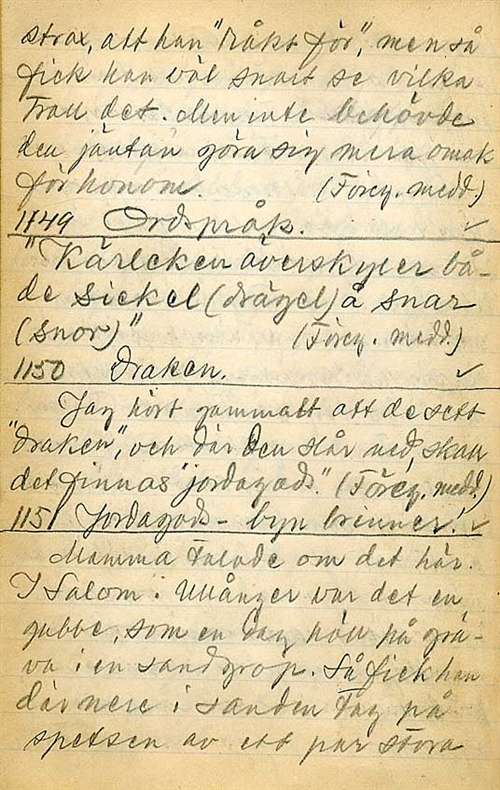 strax, att han "råkt för", men så
fick han väl snart se vilka
Trau det. Men inte behövde
den jäntan göra sig mera omak
för honom. (Föreg. medd.)
1149 Ordspråk. ✓
"Kärleken överskyler bå-
de sickel (drägel) å snar
(snor)" (Föreg. medd.)
1150 Draken. ✓
Jag hört gammalt att de sett
"draken", och där den slår ned, skall
det finnas "jordagods." (Föreg. medd.)
1151 Jordagods - byn brinner! ✓
Mamma talade om det här.
I Salom i Ullånger var det en
gubbe, som en dag höll på grä-
va i en sandgrop. Så fick han
där nere i sanden tag på
spetsen av ett par stora